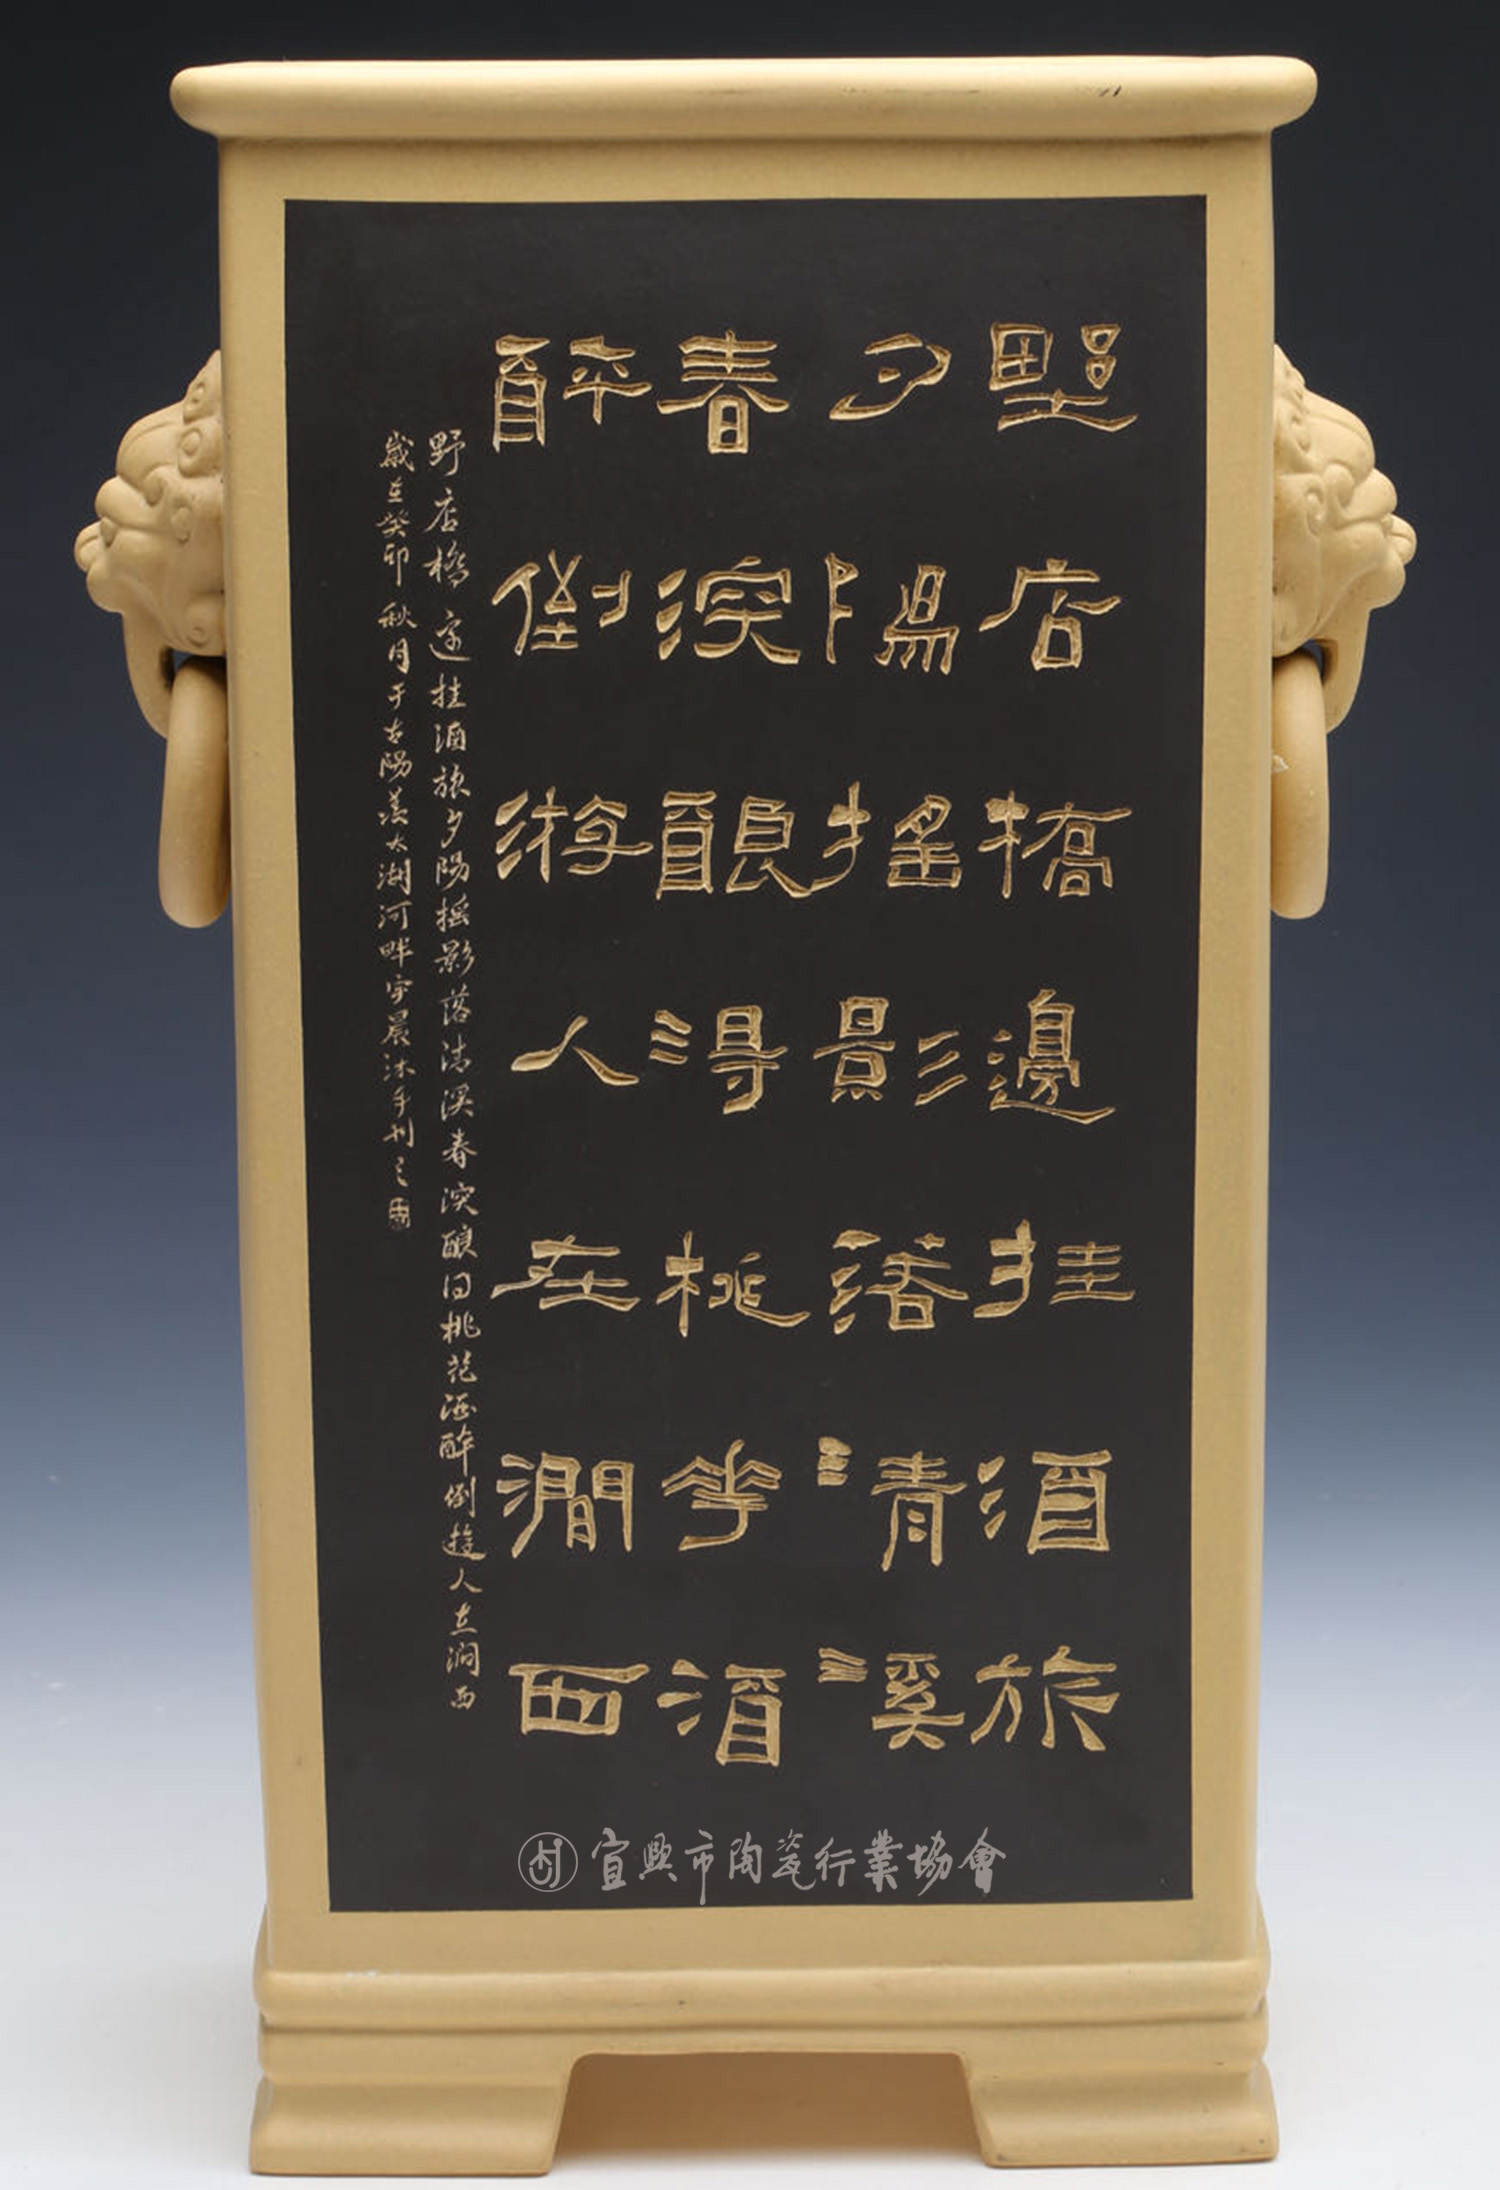 野店橋邊挂酒旅
夕陽搖影落清溪
春深釀得桃華酒
醉倒游人在澗西
野店橋邊挂酒旅夕陽摇影落清溪春深釀得桃花酒醉倒遊人在澗西
歲在癸卯秋月于古陽羨太湖河畔宇晨沐手刊之
宜興市陶瓷行業協會